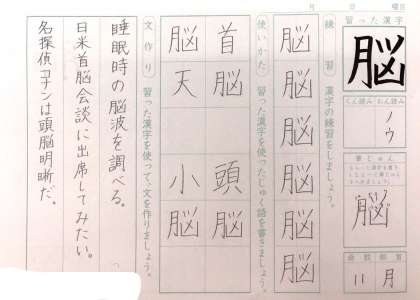 月 日 曜日
習った漢字
脳
くん読み
おん読み
ノウ
書じゅん
脳
画数
部首
11
月
練習
漢字の練習をしましょう。
脳
脳
脳
脳
脳
脳
使いかた
習った漢字を使ったじゅく語を書きましょう。
首脳
頭脳
脳天
小脳
文作り
習った漢字を使って、文を作りましょう。
睡眠時の脳波を調べる。
日米首脳会談に出席してみたい。
名探偵コナンは頭脳明晰だ。